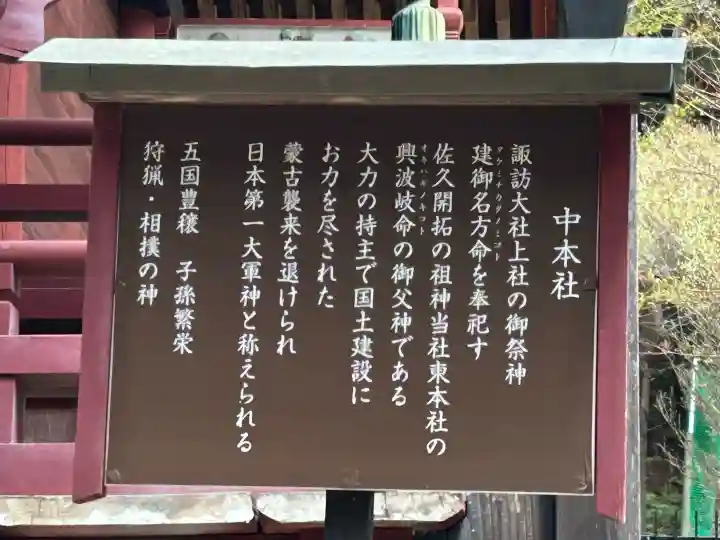 中本社
諏訪大社上社の御祭神
建御名方命を奉祀す
タケミナカタノミコト
佐久開拓の祖神当社東本社の
興波岐命の御父神である
オキハギノミコト
大力の持主で国土建設に
お力を尽された
蒙古襲来を退けられ
日本第一大軍神と称えられる
五国豊穣 子孫繁栄
狩猟・相撲の神